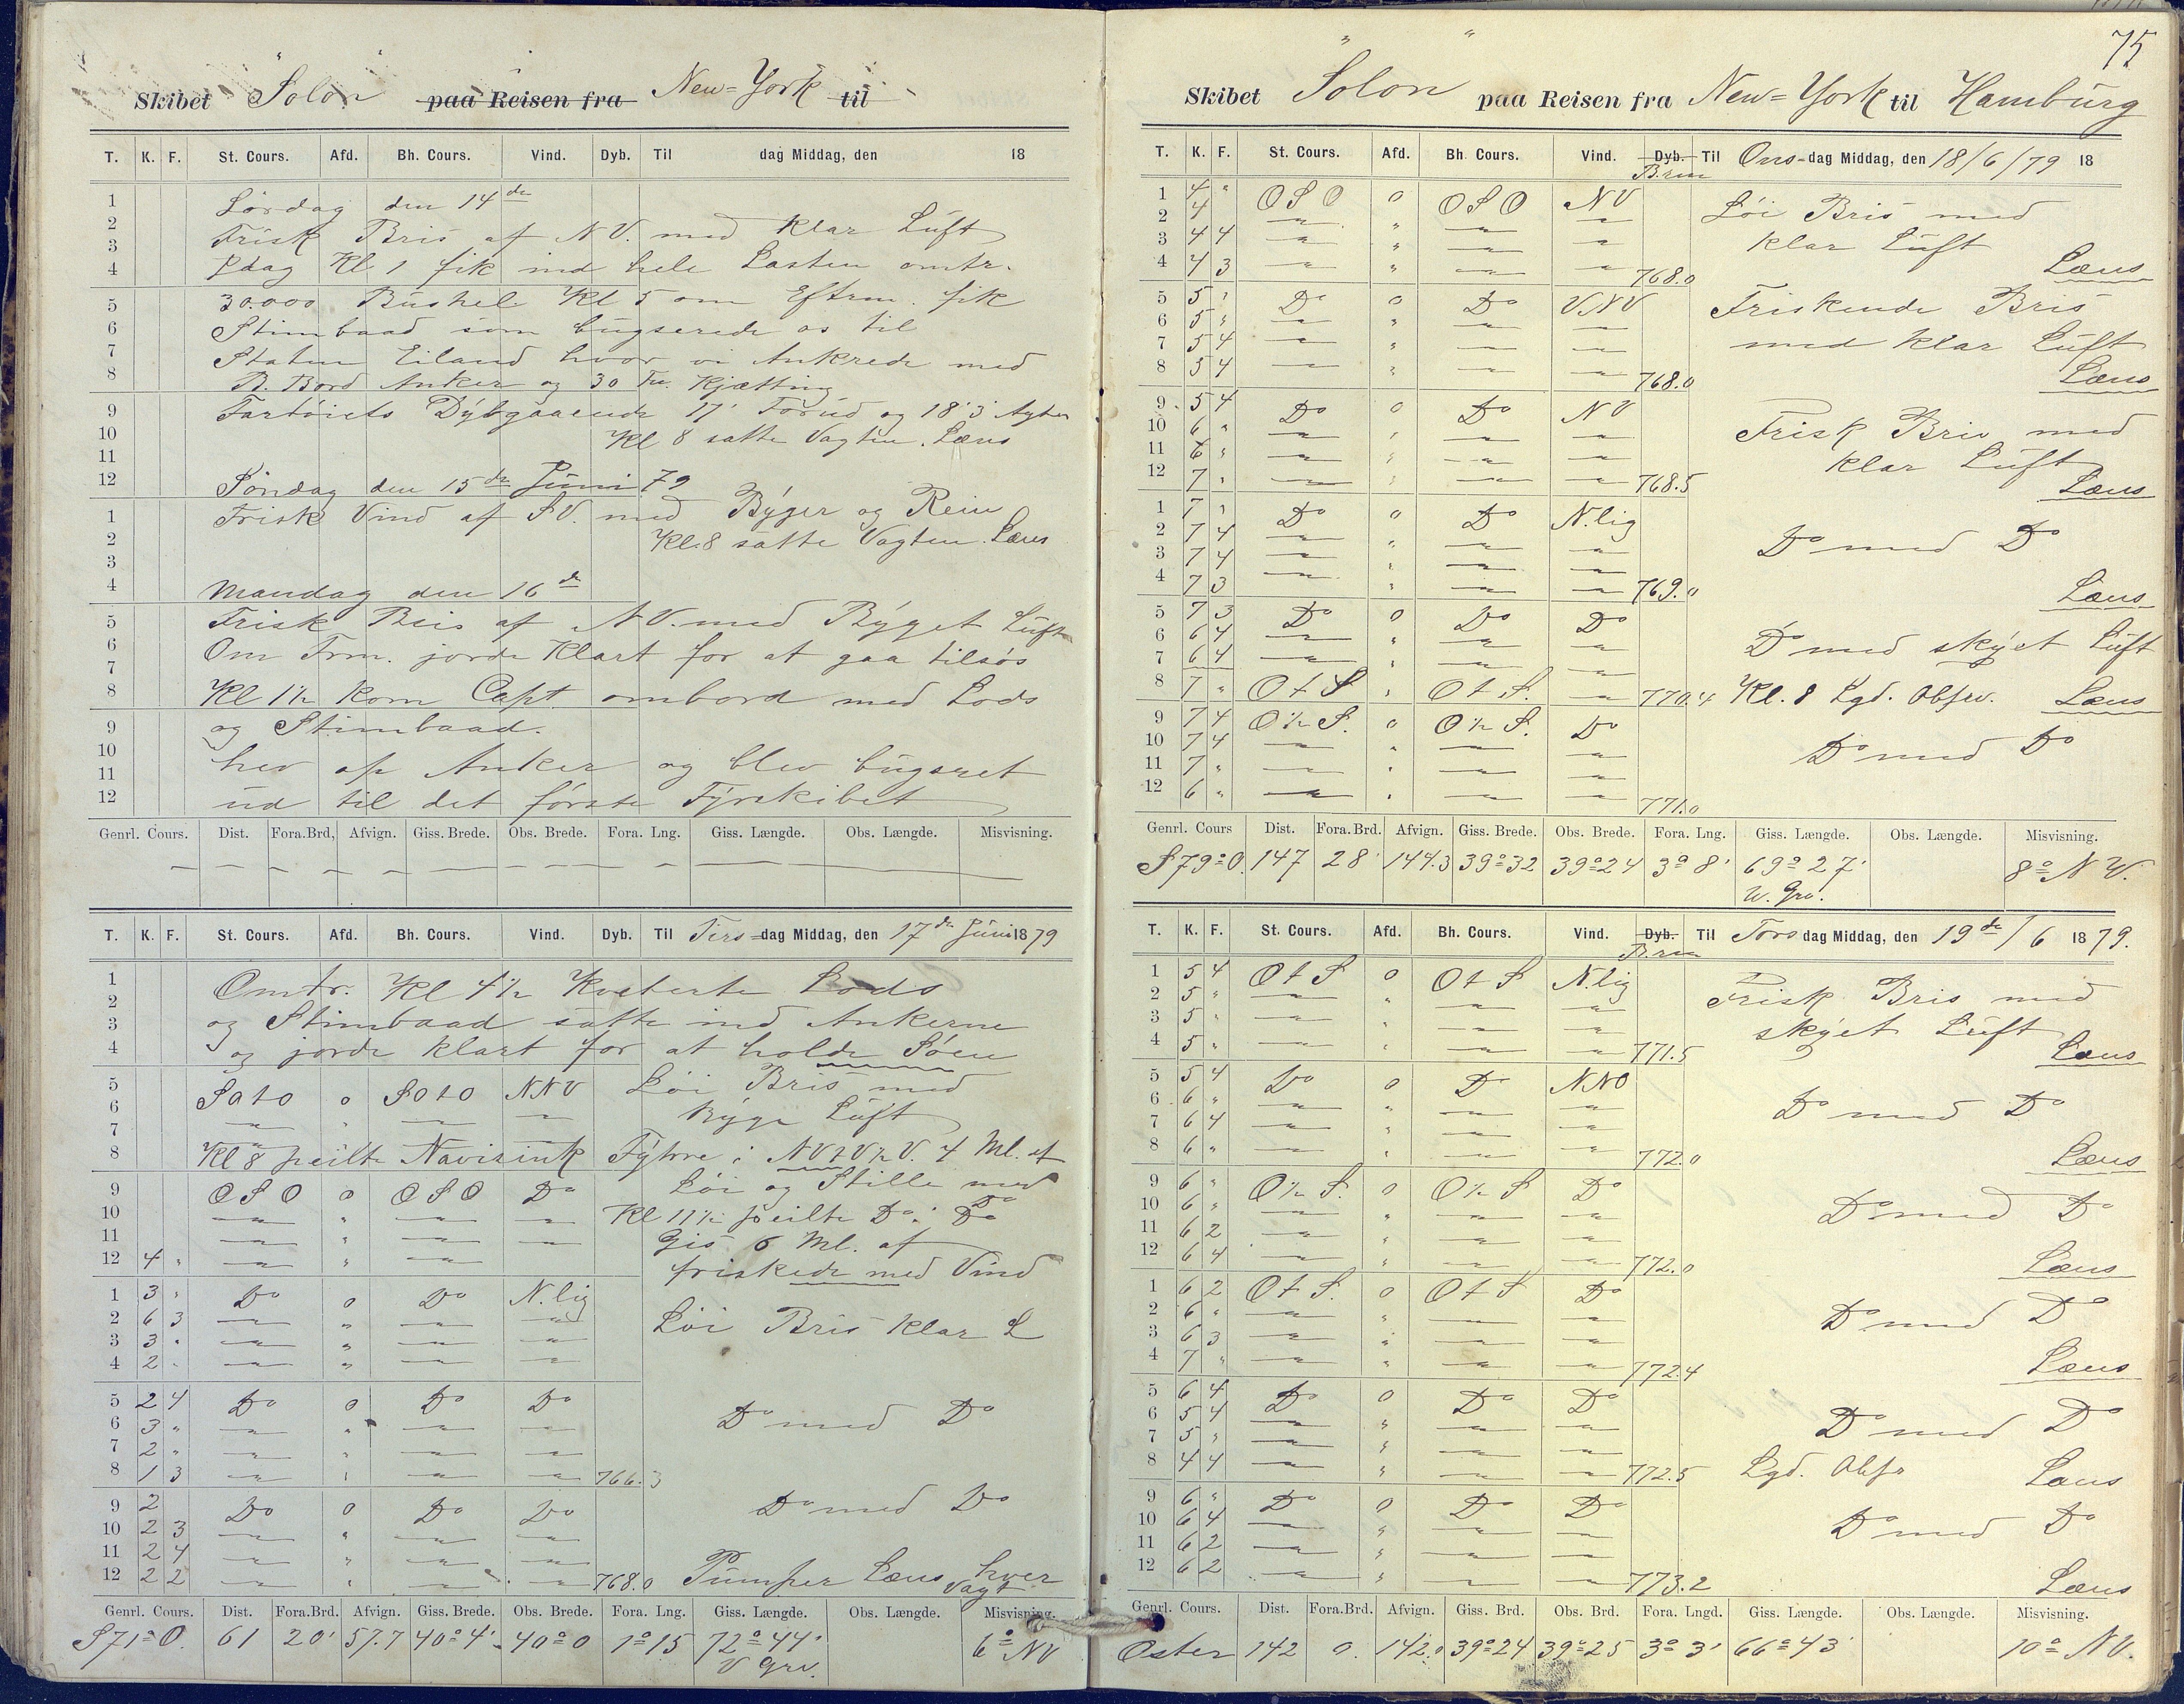 Skibet "Solon" paa Reisen fra New-York til
T. K. F. St. Cours. Afd. Bh. Cours. Vind. Dyb. Til dag Middag, den 18
Lørdag den 14de
Frisk Bris af NV. med klar Luft
Idag Kl 1 fik ind hele Lasten omtr.
30.000 Bushel Kl 5 om Eftrm. fik
Stimbaad som bugserede os til
Staten Eiland hvor vi Ankrede med
B. Bord Anker og 30 Fv. Kjætting
Fartöiets Dybgaaende 17' Forud og 18'3 Agter
Kl 8 satte Vagten. Læns
Söndag den 15de Juni 79
Frisk Vind af SV. med Byger og Rein
Kl. 8 satte Vagten. Læns
Mandag den 16de
Frisk Bris af NV. med Byget Luft
Om Frm. jorde Klart for at gaa tilsøs
Kl 1½ kom Capt ombord med Lods
og Stimbaad.
hev op Anker og blev bugseret
ud til det første Fyrskibet
Genrl. Cours. Dist. Fora.Brd, Afvign. Giss. Brede. Obs. Brede. Fora. Lng. Giss. Længde. Obs. Længde. Misvisning.
T. K. F. St. Cours. Afd. Bh. Cours. Vind. Dyb. Til Tirs=dag Middag, den 17de Juni 1879
Omtr. Kl 4½ Kviterte Lods
og Stimbaad satte ind Ankerne
og jorde klart for at holde Søen
5 SOtO 0 SOtO NNV Löi Bris med
6 Byge Luft
7
8 Kl 8 peilte Navisink Fytrne i NVtV½V. 4 Ml. af
9 OSO 0 OSO Do Löi og Stille med
10 Kl 11½ peilte Do: Do
11 Gis 6 Ml. af
12 4 " friskede med Vind
1 3 " Do 0 Do N.lig
2 6 3 Löi Bris klar L
3 3 "
4 2 "
5 2 4 Do 0 Do Do
6 3 " Do med Do
7 2 "
8 1 3 766.3
9 2 Do 0 Do Do Do med Do
10 2 3
11 2 4
12 2 2 768.0 Pumper Læns hver Vagt
Genrl. Cours. Dist. Fora.Brd. Afvign. Giss. Brede. Obs. Brede. Fora. Lng. Giss. Længde. Obs. Længde. Misvisning.
S71°O. 61 20' 57.7 40°4' 40°0 1°15 72°44' V Grv. 6° NV
75
Skibet "Solon" paa Reisen fra New=York til Hamburg
T. K. F. St. Cours. Afd. Bh. Cours. Vind. Dyb. Brm Til Ons-dag Middag, den 18/6/79 18
1 4 " OSO 0 OSO NV Löi Bris med
2 4
3 4 4 klar Luft
4 4 3 768.0 Læns
5 5 " Do 0 Do VNV Friskende Bris
6 5 "
7 5 4 med klar Luft
8 5 4 768.0 Læns
9 5 4 Do 0 Do NV
10 6 " Frisk Bris med
11 6 " klar Luft
12 7 " 768.5 Læns
1 7 " Do 0 Do N.lig
2 7 4 Do med Do
3 7 4
4 7 3 769.0 Læns
5 7 3 Do 0 Do Do
6 6 4 Do med skyet Luft
7 6 4
8 7 " OtS " OtS. 770.4 Kl. 8 Lgd. Obsrv. Læns
9 7 4 O½S. 0 O½S. Do
10 7 4 Do med Do
11 7 "
12 6 " 771.0
Genrl. Cours Dist. Fora.Brd. Afvign. Giss. Brede. Obs. Brede. Fora. Lng. Giss. Længde. Obs. Længde. Misvisning.
S79°O. 147 28' 144.3 39°32 39°24 3°8' 69°27' W. Grv. 8° NW.
T. K. F. St. Cours. Afd. Bh. Cours. Vind. Dyb. Brm Til Tors dag Middag, den 19de/6 1879.
1 5 4 OtS 0 OtS N.lig Frisk Bris med
2 5 "
3 5 " skyet Luft
4 5 " 771.5 Læns
5 5 4 Do 0 Do NNO
6 6 " Do med Do
7 6 4
8 6 " 772.0 Læns
9 6 " O½S. 0 O½S Do
10 6 " Do med Do
11 6 2
12 6 4 772.0 Læns
1 6 2 OtS. 0 OtS Do
2 6 " Do med Do
3 6 3
4 7 " 772.4 Læns
5 6 4 Do 0 Do Do
6 5 4 Do med Do
7 5 "
8 4 4 772.5 Lgd. Obsr Læns
9 6 " Do 0 Do Do
10 6 4 Do med Do
11 6 2
12 6 2 773.2 Læns
Genrl. Cours. Dist. Fora.Brd. Afvign. Giss. Brd. Obs. Brd. Fora. Lngd. Giss. Længde. Obs. Længde. Misvisning.
Oster 142 0. 142.0 39°24 39°25 3°3' 66°43' 10° NV.